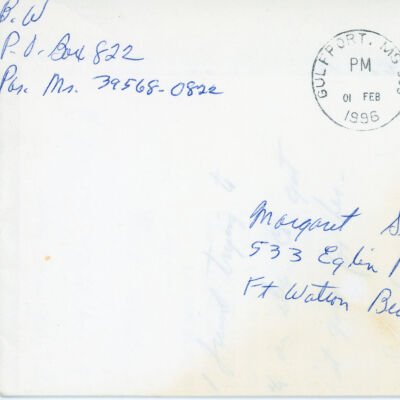 B. W
P.O. Box 822
Pas. Ms. 39568-0822
GULFPORT, MS
PM
01 FEB
1996
Margaret S
533 Eglin
Ft Watson Be